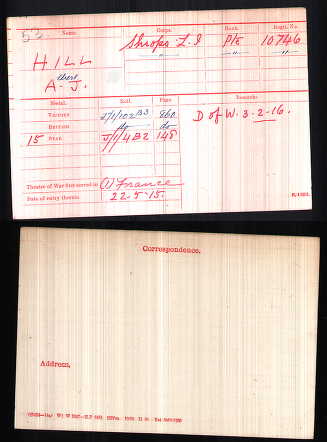 Name.
Corps.
Rank.
Regtl. No.
HILL
Shrops L.I
Pte
10746
Albert
A. J.
Medal.
Roll.
Page
Remarks.
Victory
J/1/102 B3
860
D of W. 3-2-16.
British
do
do
15 Star
J/1/4B2
148
Theatre of War first served in
(1) France
Date of entry therein
22-5-15.
Correspondence.
Address.